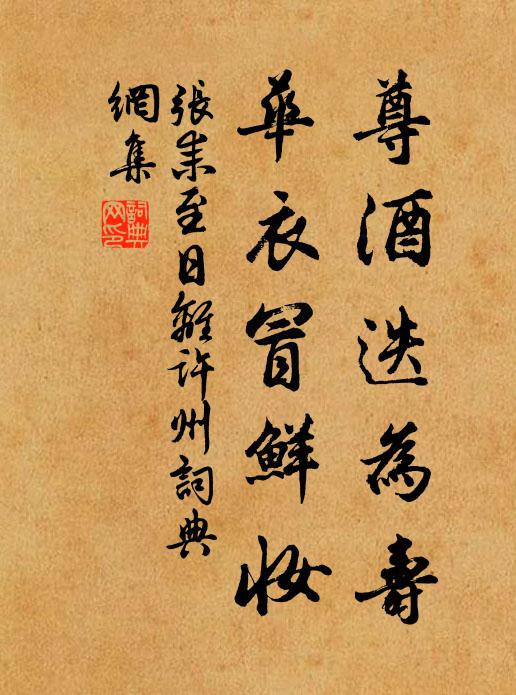 尊酒迭為壽
華衣冒鮮妝
張耒至日離許州詞典
網集
詞典
网印